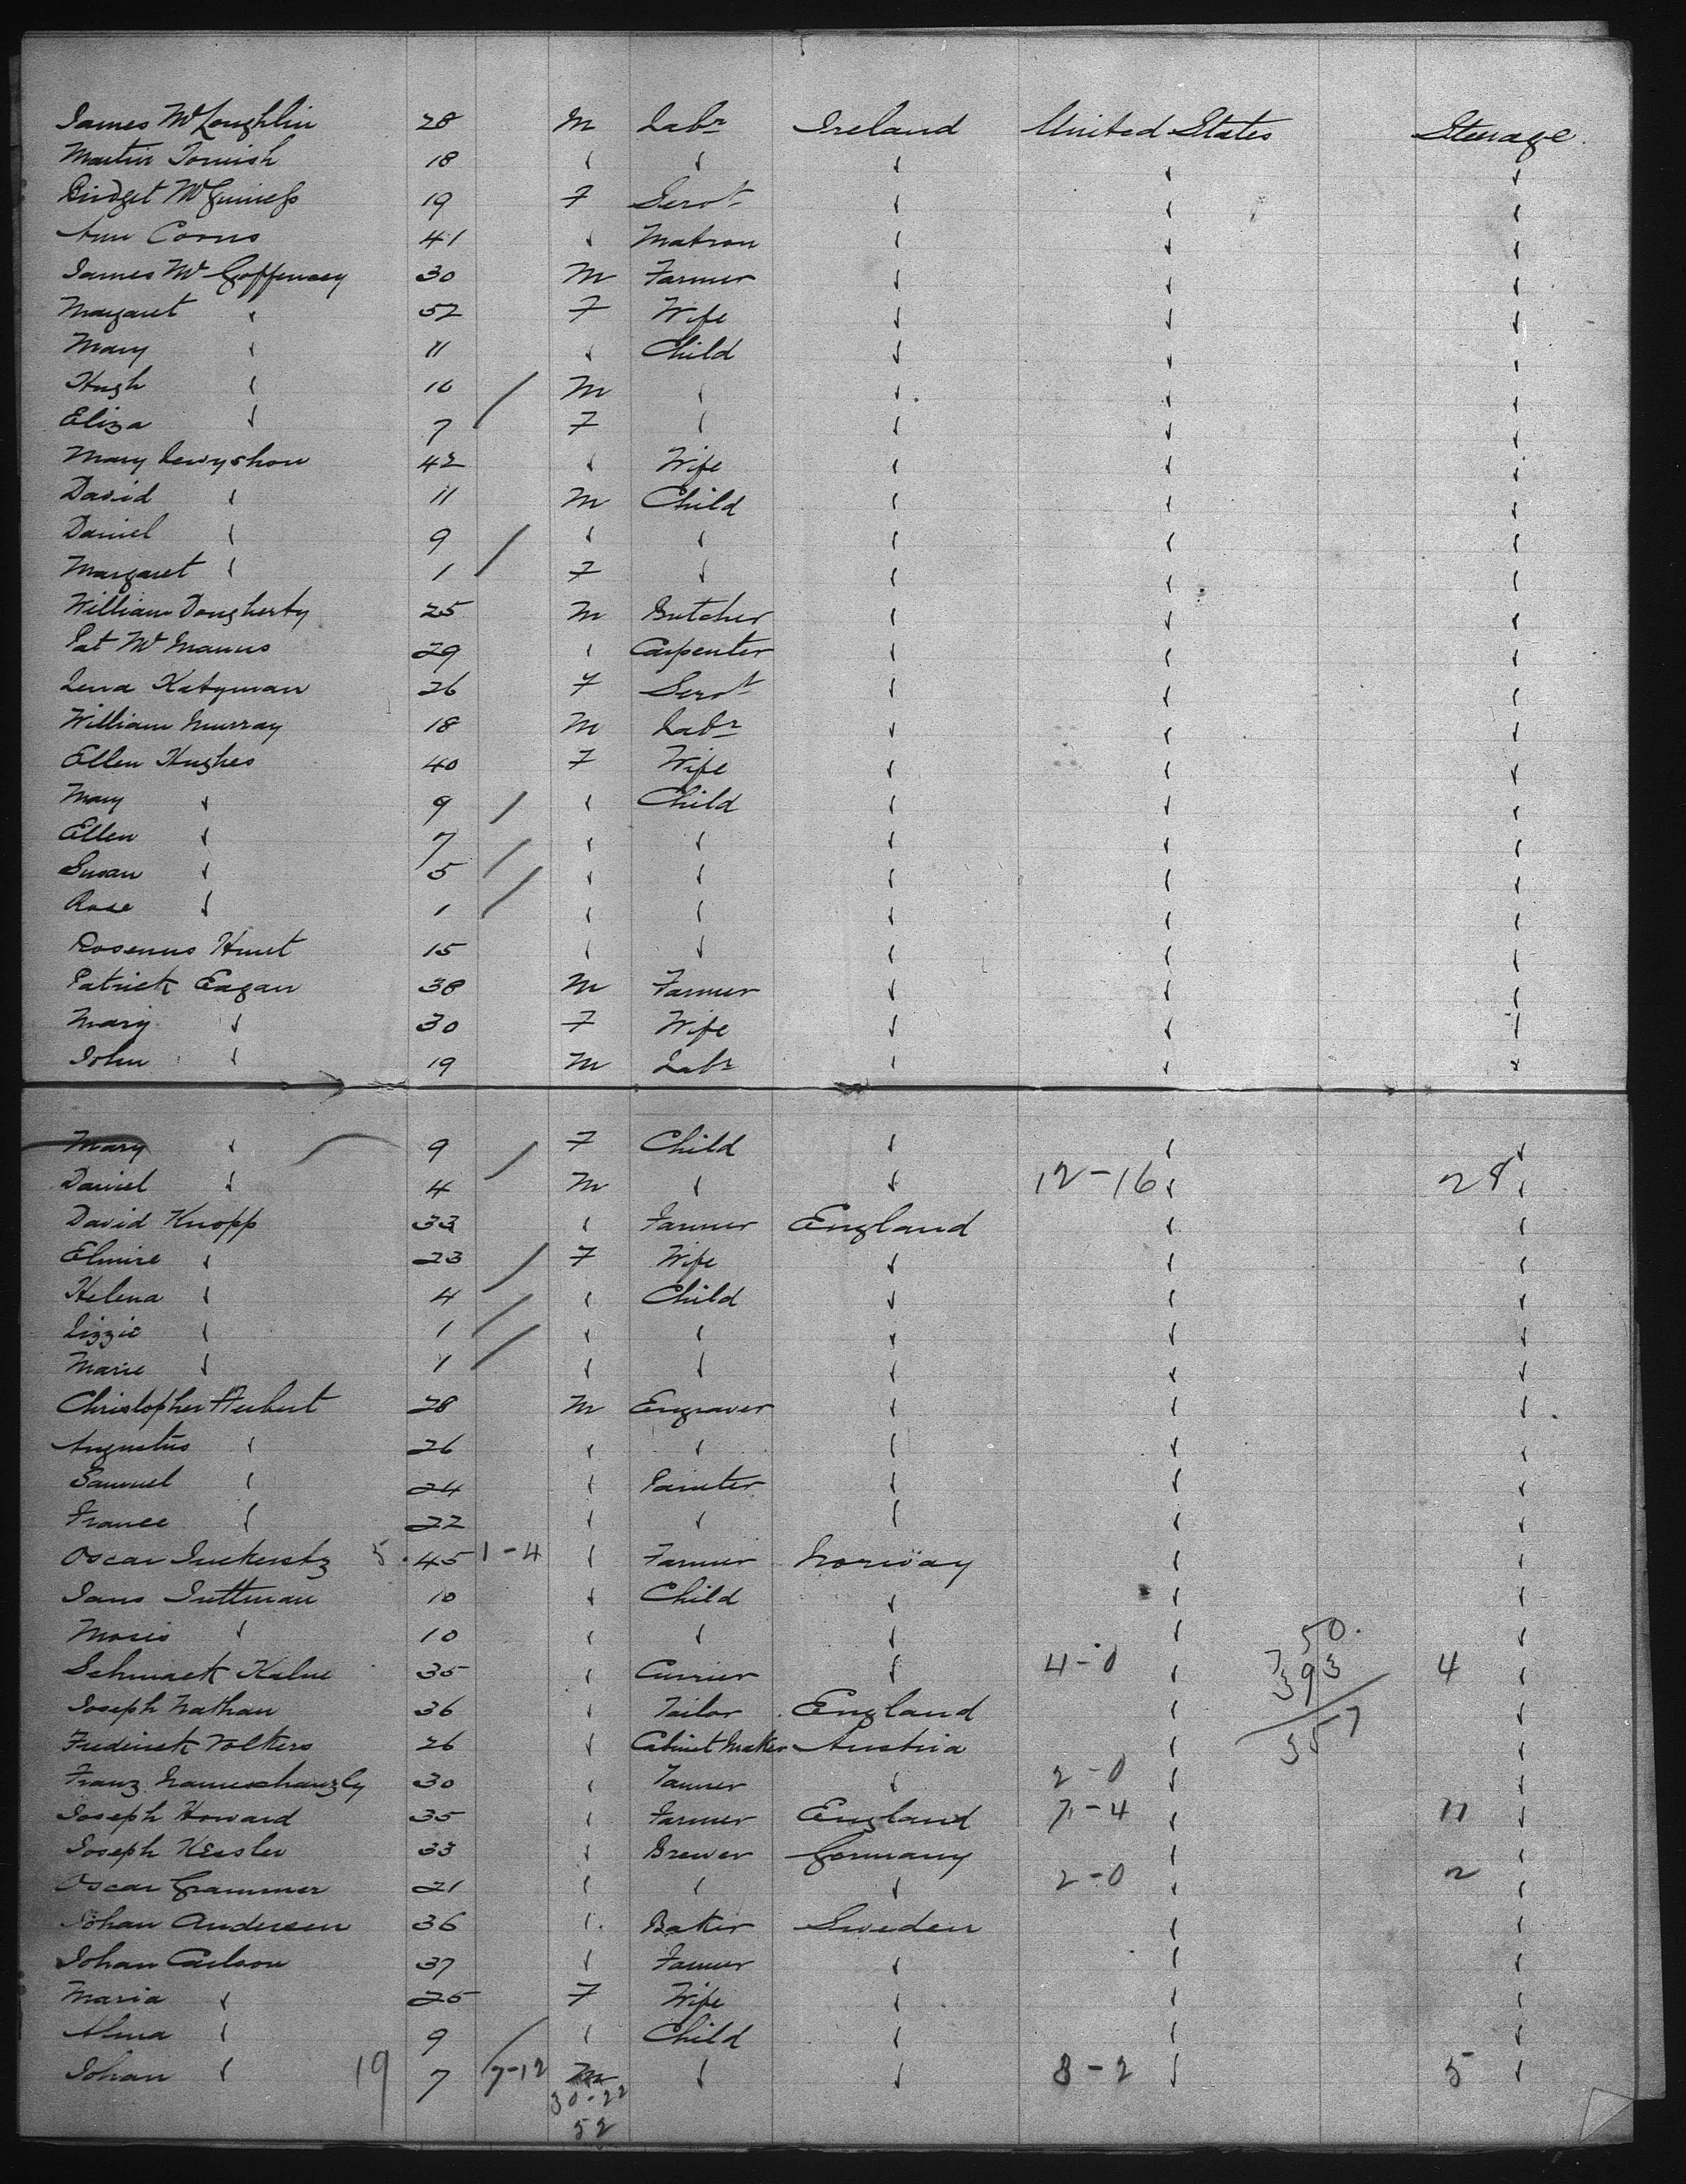 James McLoughlin 28 M Labr Ireland United States Steerage.
Martin 18 " " " " "
Bridget McGuiness 19 F Servt " " "
Ann Coons 41 " Matron " " "
James McGaffency 30 M Farmer " " "
Margaret " 52 F Wife " " "
Mary " 11 " Child " " "
Hugh " 10 / M " " " "
Eliza " 7 F " " " "
Mary Lewyshon 42 " Wife " " "
David " 11 M Child " " "
Daniel " 9 / " " " " "
Margaret " 1 F " " " "
William Dougherty 25 M Butcher " " "
Pat McManus 29 " Carpenter " " "
Lena Katzman 26 F Servt " " "
William Murray 18 M Labr " " "
Ellen Hughes 40 F Wife " " "
Mary " 9 / " Child " " "
Ellen " 7 / " " " " "
Susan " 5 / " " " " "
Rose " 1 " " " " "
Hunt 15 " " " " "
Patrick Eagan 38 M Farmer " " "
Mary " 30 F Wife " " "
John " 19 M Labr " " "
Mary " 9 / F Child " " "
Daniel " 4 M " " 12-16 " 28 "
David Knopp 33 " Farmer England " "
Elmire " 23 / F Wife " " "
Helena " 4 / " Child " " "
Lizzie " 1 / " " " " "
Marie " 1 " " " " "
Christopher Herbert 28 M Engraver " " "
Augustus " 26 " " " " "
Samuel " 24 " Painter " " "
France " 22 " " " " "
Oscar 5 45 1-4 " Farmer Norway " "
Suttman 10 " Child " " "
Moses " 10 " " " " 50. "
Schmack Kalne 35 " Currier " 4-0 " 393 4 "
Joseph Nathan 36 " Tailor England " "
Frederick Volkers 26 " Cabinet Maker Austria " 357 "
Franz 30 " Tanner " 2-0 " "
Joseph Howard 35 " Farmer England 7-4 " 11 "
Joseph Kessler 33 " Brewer Germany " "
Oscar Grammer 21 " " " 2-0 " 2 "
Johan Andersen 36 " Baker Sweden " "
Johan Carlson 37 " Farmer " " "
Maria " 25 F Wife " " "
Alma " 9 / " Child " " "
Johan " 19 7 7-12 M " " 3-2 " 5 "
30-22
52